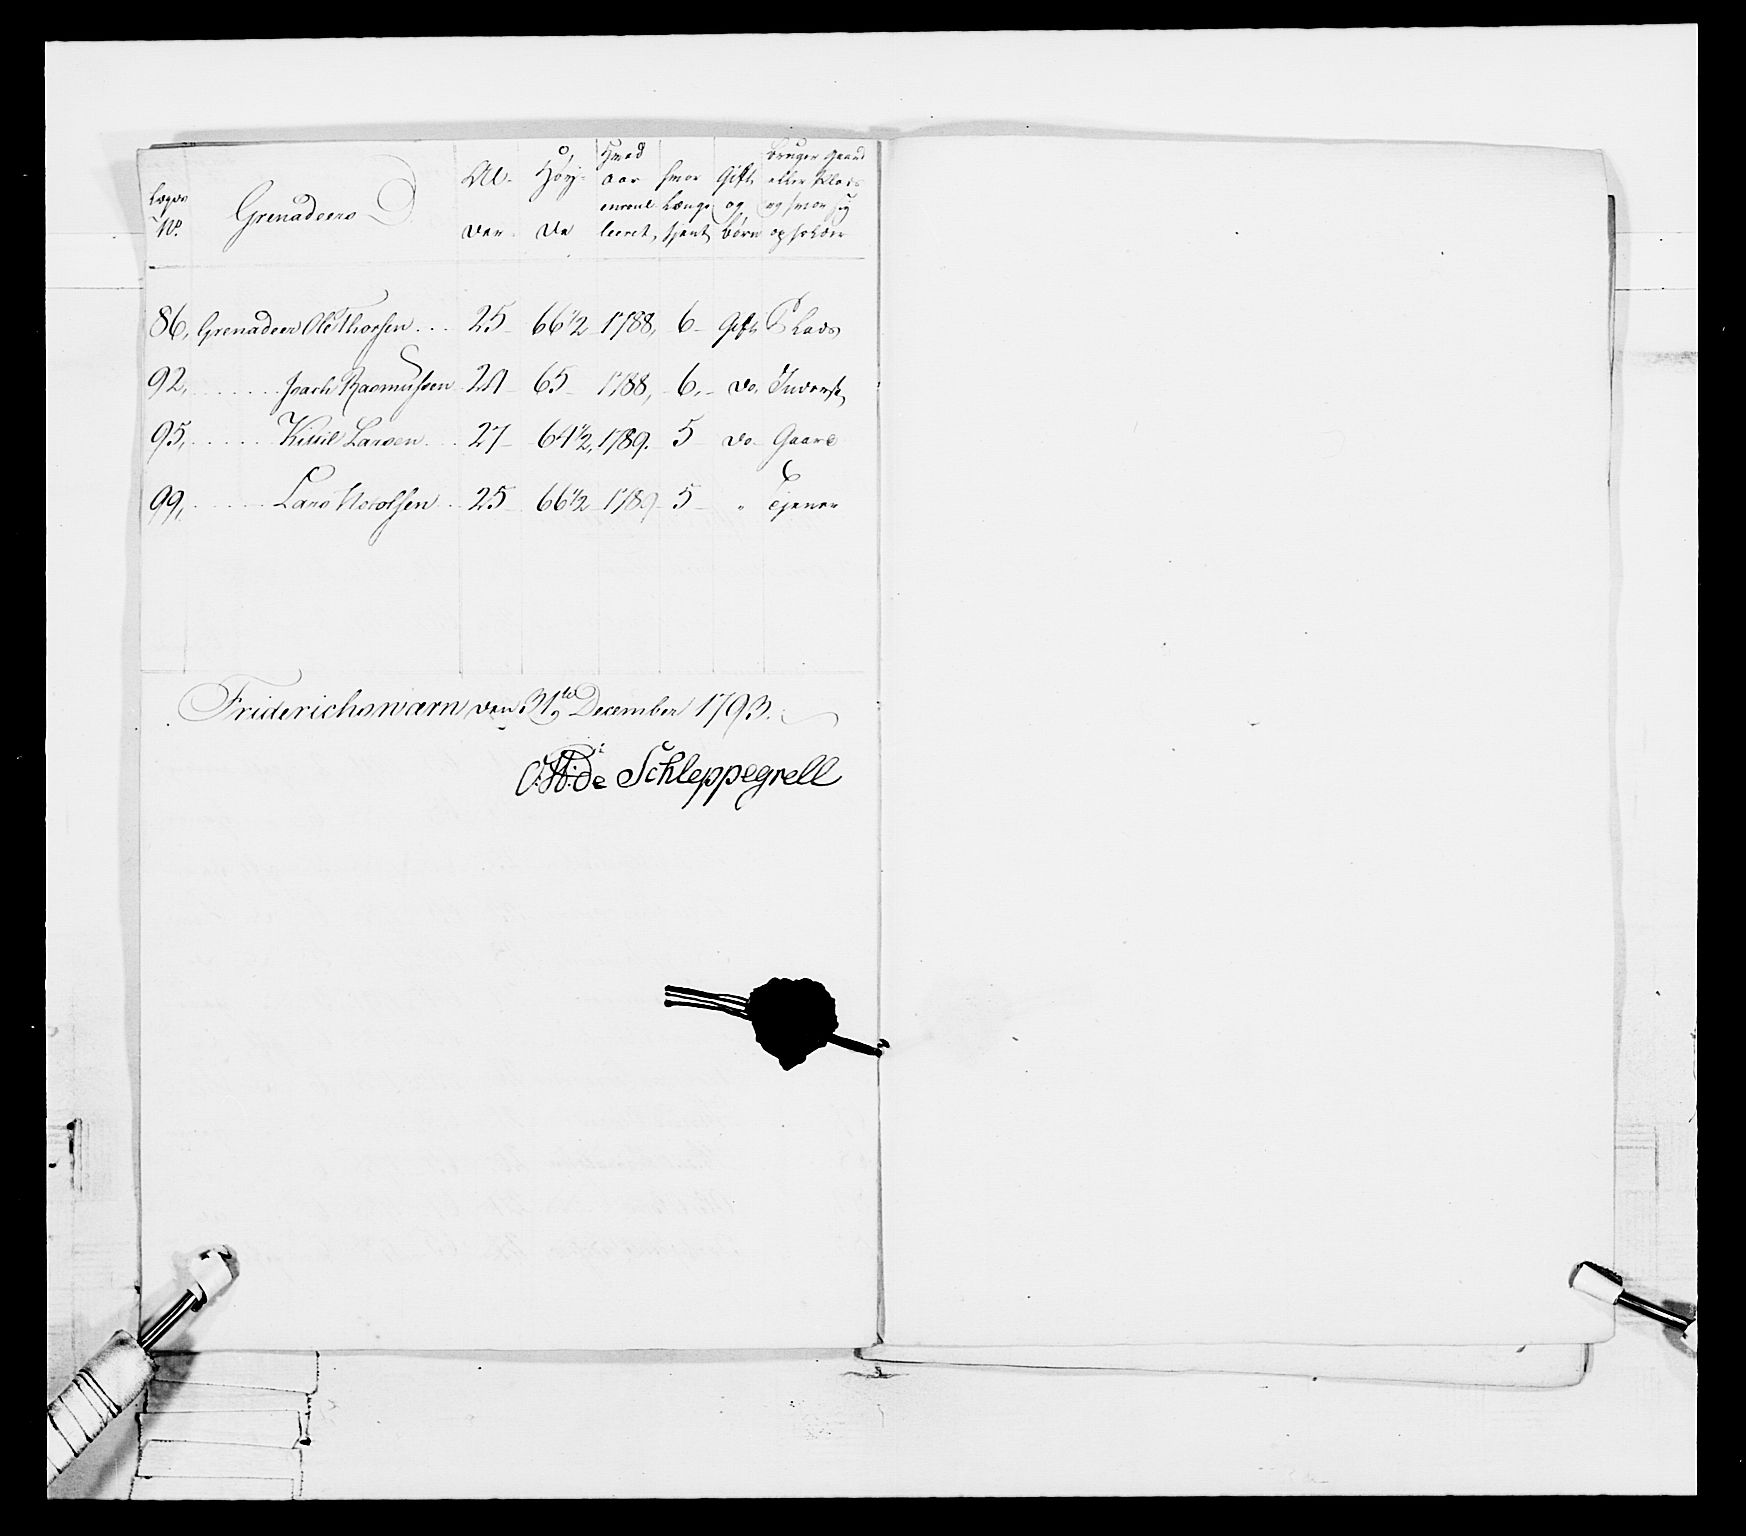 Lægds No. Grenadeers Al- der Høy- de Hvad aar enroul- leeret, hvor længe tjent, Gift og børn Bruger Gaard eller Plads og hvor sig opholder
86, Grenadeer Ole Thorsen . . . 25 - 66 1/2 - 1788, - 6 - Gift Plads
92, . . . . . . Isach Rasmussen 24 - 65 - 1788, - 6, - do Inderst,
95, . . . . . Kittil Larsen . . . 27 - 64 1/2, 1789. - 5 - do - Gaard
99, . . . . . Lars 25 - 66 1/2 - 1789 - 5 - " Tjener
Friderichswærn den 31te December 1793.
de Schleppegrell